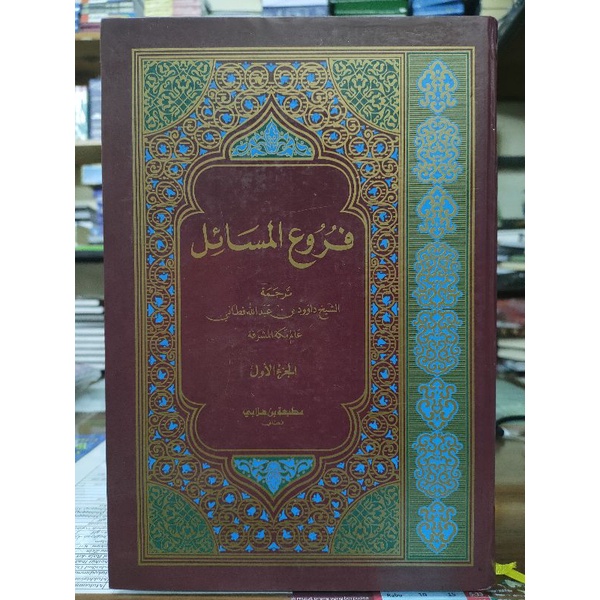 فروع المسائل
ترجمة
الشيخ داوود بن عبد الله فطاني
عالم مكة المشرفة
الجزء الأول
مطبعة بن هلابي
فطاني